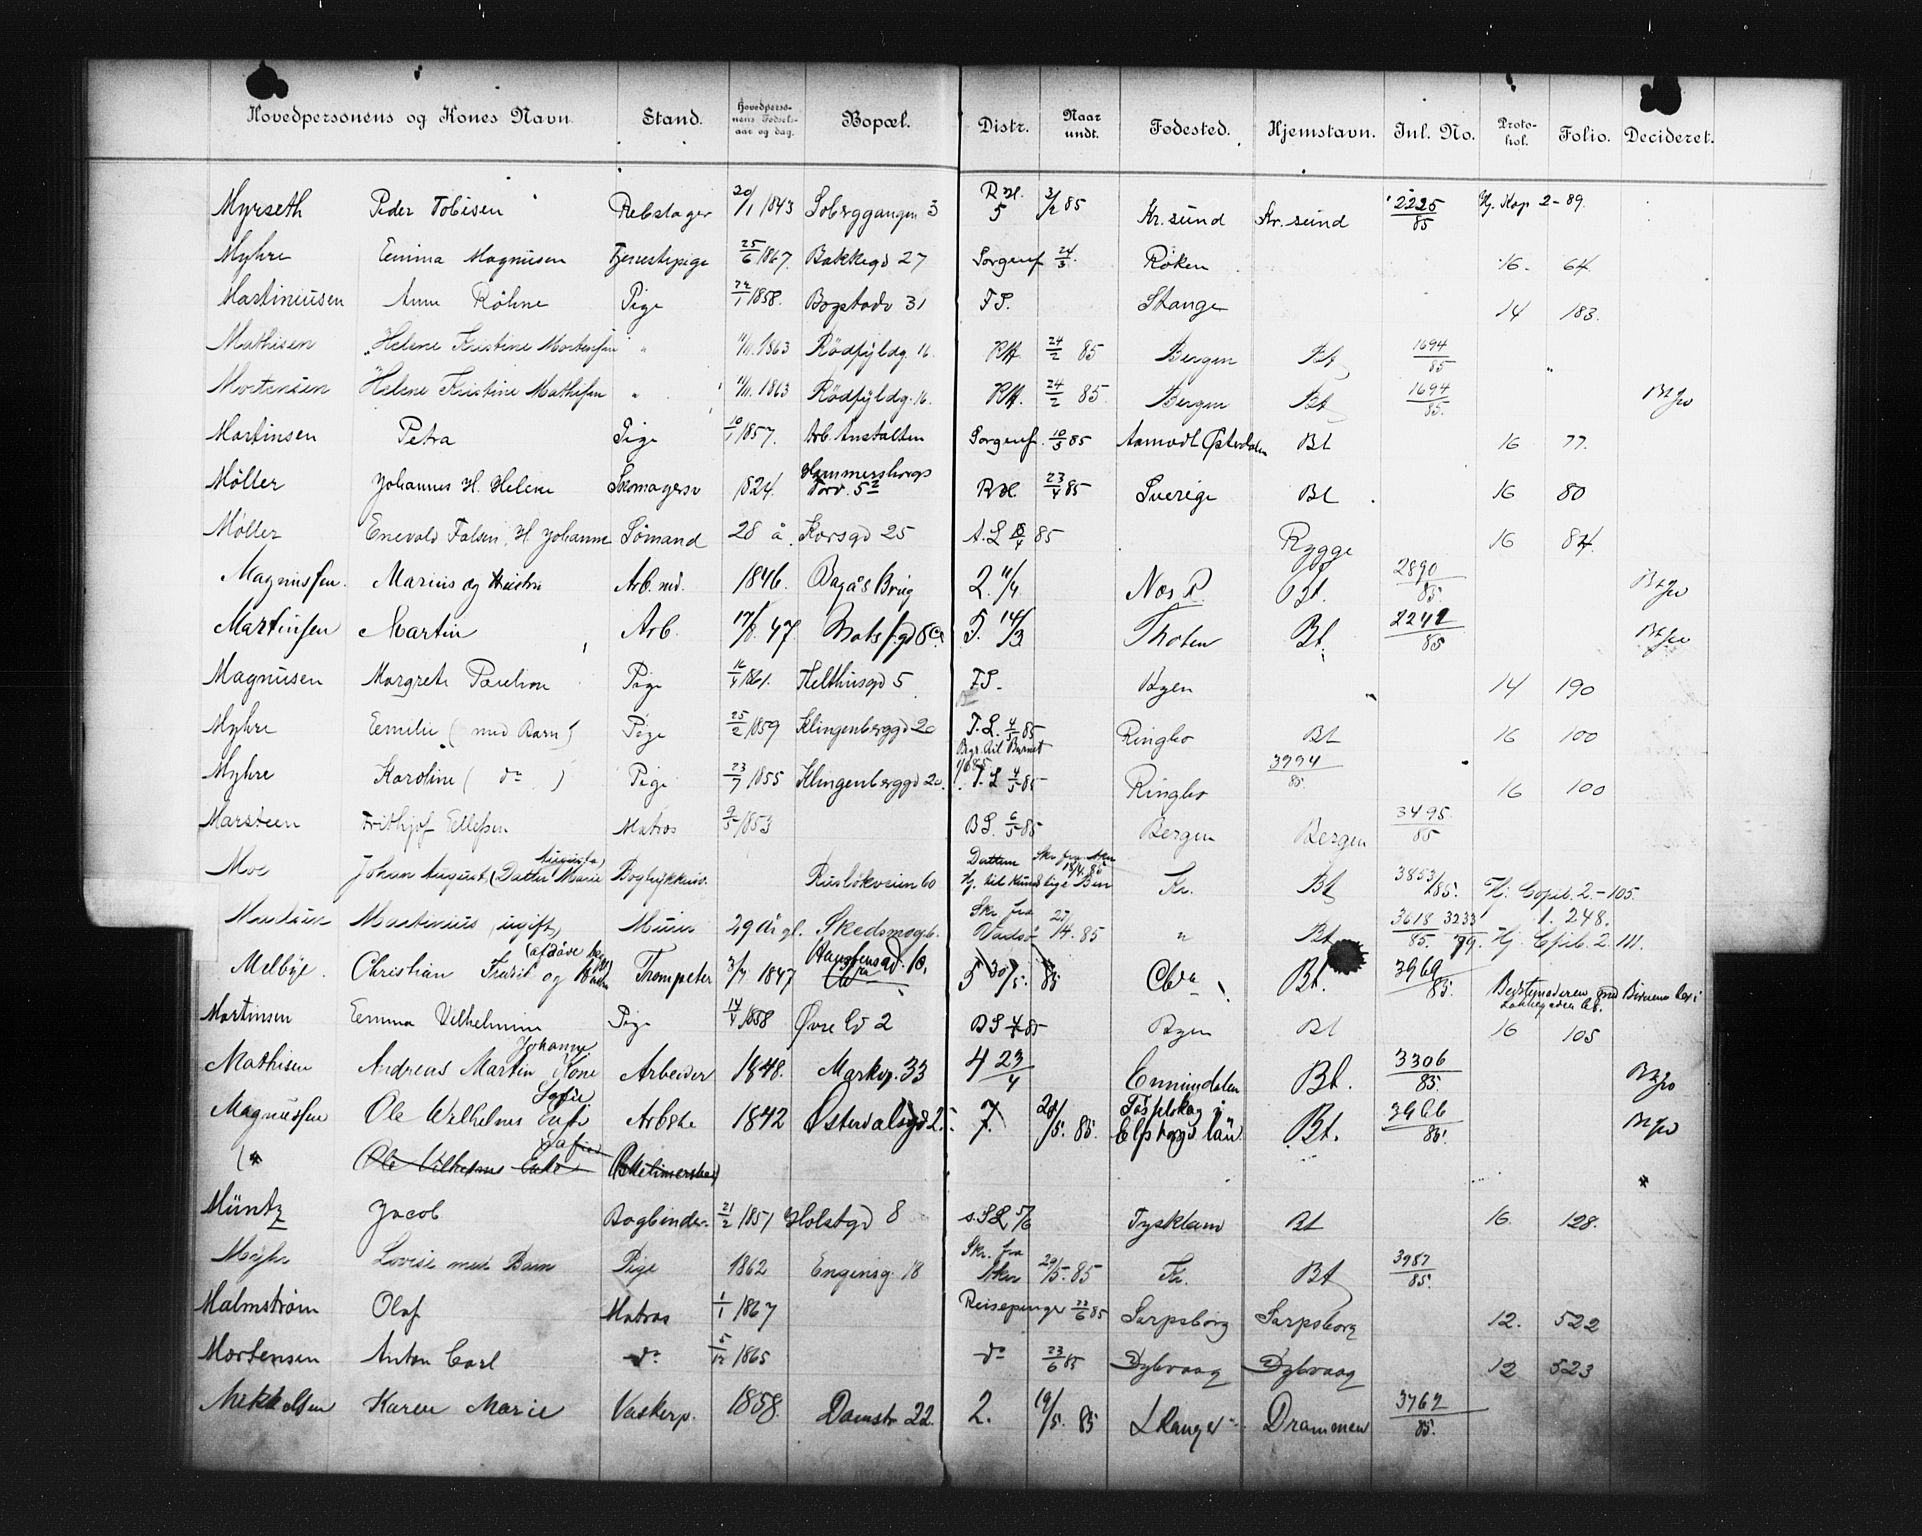 Hovedpersonens og Kones Navn. Stand. Hovedpersonens Fødselsaar og dag. Bopæl. Distr. Naar undt. Fødested. Hjemstavn. Inl. No. Protokol. Folio. Decideret.
Myrseth Peder Tobisen Rebslager 20/1 1843 Soberggangen 3 5 3/2 85 Kr. sund Kr. sund 2225/85 Hj. Kop 2-89.
Myhre Emma Magnusen Tjenestepige 25/6 1867. Bakkegd 27 Sorgenf 24/3 Røken 16. 64
Martiniusen Anne Røhne Pige 1858. Bogstadv 31 F.S. Stange 14 183.
Mathisen Helene Kristine Mortensen " 1863 Rødfyldg. 16. RH 24/2 85 Bergen Bt 1694/85
Mortensen Helene Kristine Mathisen " 1863 Rødfyldg. 16. RH. 24/2 85. Bergen Bt 1694/85.
Martinsen Petra Pige 10/1 1857. Arb. Anstalten Sorgenf. 10/3 85 Aamodt Østerdalen Bt 16 77.
Møller Johannes H. Helene Skomagersv 1824. Hammersborgs Torv. 5 23/4 85 Sverige Bt 16 80
Møller Enevold Falsen, H. Johanne Sømand 28 å. Korsgd 25 A.L 85 Rygge 16 84.
Magnussen. Marius og Arb. md. 1846. Bagås Brug 2. 11/4. Nes R. Bt. 2890/85.
Martinsen Martin Arb. 47 5. 14/3 Thoten Bt. 2242/85
Magnusen Margrete Pauline Pige 1861. Kelthusgd 5 F.S. Byen 14 190
Myhre Emilie (med Barn) Pige 25/2 1859 Klingenberggd 20 T.L. 4/5 85 Ringbo Bt 16 100
Myhre Karoline (do) Pige 23/7 1855 Klingenberggd 20. T.L 4/5 85 Ringbo 3994/85. 16 100
Marsteen Frithjof Ellefsen Matros 9/5 1853 BS. 6/5 85 Bergen Bergen 3495/85
Moe Johan August, (Datter Augusta Marie) Rusløkveien 60 Kr. Bt 3853/85. Hj. Copib. 2-105.
Martinius, ugift, Murer 29 År gl. Skedsmogb. Skr fra Vadsø 27/4. 85 " Bt 3618/85. 3233/79. 1. 248. Hj. Cpib. 2. 111.
Melbye. Christian Trompeter 3/7. 1847 10. 5 30/5. 85 Bt. 3969/85.
Martinsen Emma Vilhelmine Pige 14/4 1858 Øvre Gd 2 BS 85 Byen Bt 16 105
Mathisen Andreas Martin Kone Johanne Arbeider 1848. Markv. 33 4 23/4 Enningdalen Bt. 3306/85.
Magnussen Ole Wilhelms Sofie 1842 Østerdalsgd 2. 7. 20/5. 85. Elfsborgs län Bt. 3966/85.
Ole Vilhelms
Müntz Jacob Bogbinder. 21/2 1851 Holstgd 8 5/6 Tyskland Bt 16. 128.
Myhr Lovise med Barn Pige 1862 Engensg. 18 Skr. fra Aker 29/5. 85 Kr. Bt 3987/85.
Malmstrøm Olaf Matros 1/1 1867 Reisepenger 22/6 85 Sarpsborg Sarpsborg 12. 522
Mortensen Anton Carl do 5/12 1865 do 23/6 85 Dybvaag Dybvaag 12 523
Mikkelsen Karen Marie Vaskerp. 1858. Damstr. 22. 2. 19/5. 85 Drammen 3762/85.